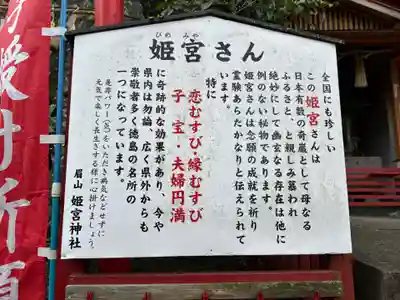 ひめみや
姫宮さん
全国にも珍しい
この姫宮さんは
日本有数の奇嵐として母なる
ふるさと、と親しみ慕われ
絶妙にして幽玄なる存在は他に
例のない秘物であります。
姫宮さんは念願の成就を祈り
霊験あらたかなりと伝えられて
特に
恋むすび・縁むすび
子宝・夫婦円満
に奇跡的な効果があり、今や
県内は勿論、広く県外からも
崇敬者多く徳島の名所の
一つになっています。
是非パワー(気)をいただき病気などせずに
元気で楽しく長生きする様に心掛けましょう。
眉山 姫宮神社
授け祈願